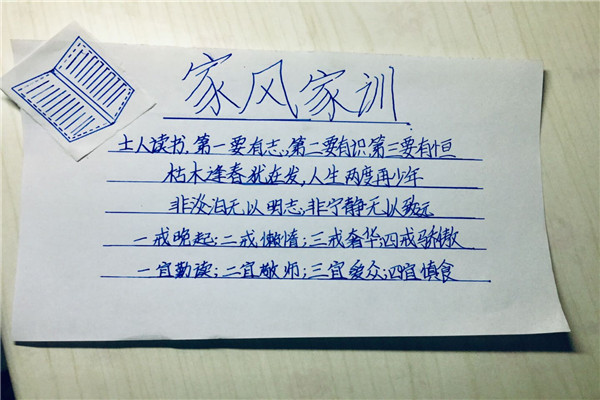 家风家训
士人读书,第一要有志,第二要有识第三要有恒
枯木逢春犹在发,人生两度再少年
非淡泊无以明志;非宁静无以致远
一戒晚起;二戒懒惰;三戒奢华;四戒骄傲
一宜勤读;二宜敬师;三宜爱众;四宜慎食